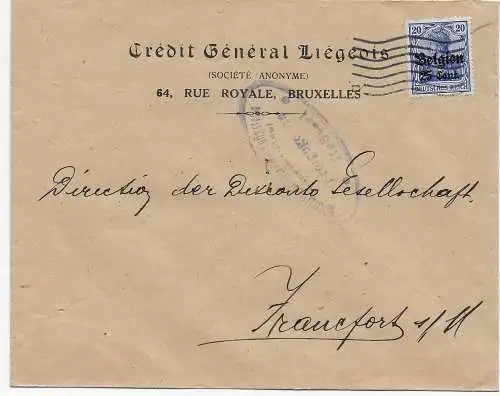 20 20
Belgien
25 Cent.
DEUTSCHES REICH
Crédit Général Liégeois
(SOCIÉTÉ ANONYME)
64, RUE ROYALE, BRUXELLES
Direction der Disconto Gesellschaft
Francfort s/M